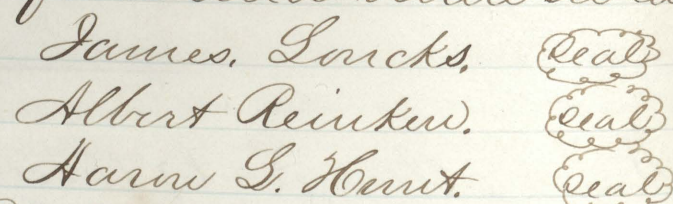 James. Loucks. seal
Albert Reinken. seal
Aaron G. Hunt. seal